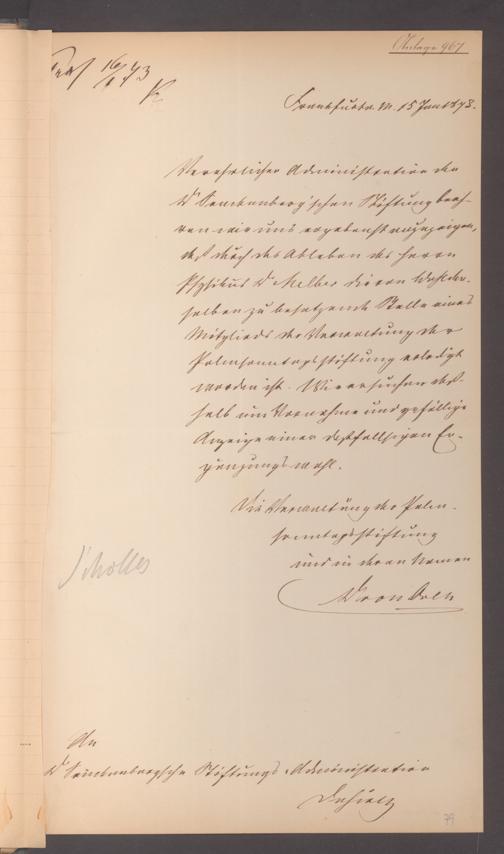 Anlage 967.
16/1 73
K
Frankfurt a. M. 15 Jan 1873.
Verehrlicher Administration der
Dr Senckenberg'schen Stiftung beeh-
ren wir uns ergebenst anzuzeigen,
daß durch das Ableben des Herrn
Physikus Dr Melber die von Wahl der-
selben zu besetzende Stelle eines
Mitglieds der Verwaltung der
Palmsonntagsstiftung erledigt
worden ist. Wir ersuchen deß-
halb um Vornahme und gefällige
Anzeige einer deßfallsigen Er-
gänzungswahl.
Die Verwaltung der Palm-
sonntagsstiftung
und in deren Namen
Scholles
An
Dr Senckenbergsche Stiftungs-Administration
Dahier
79